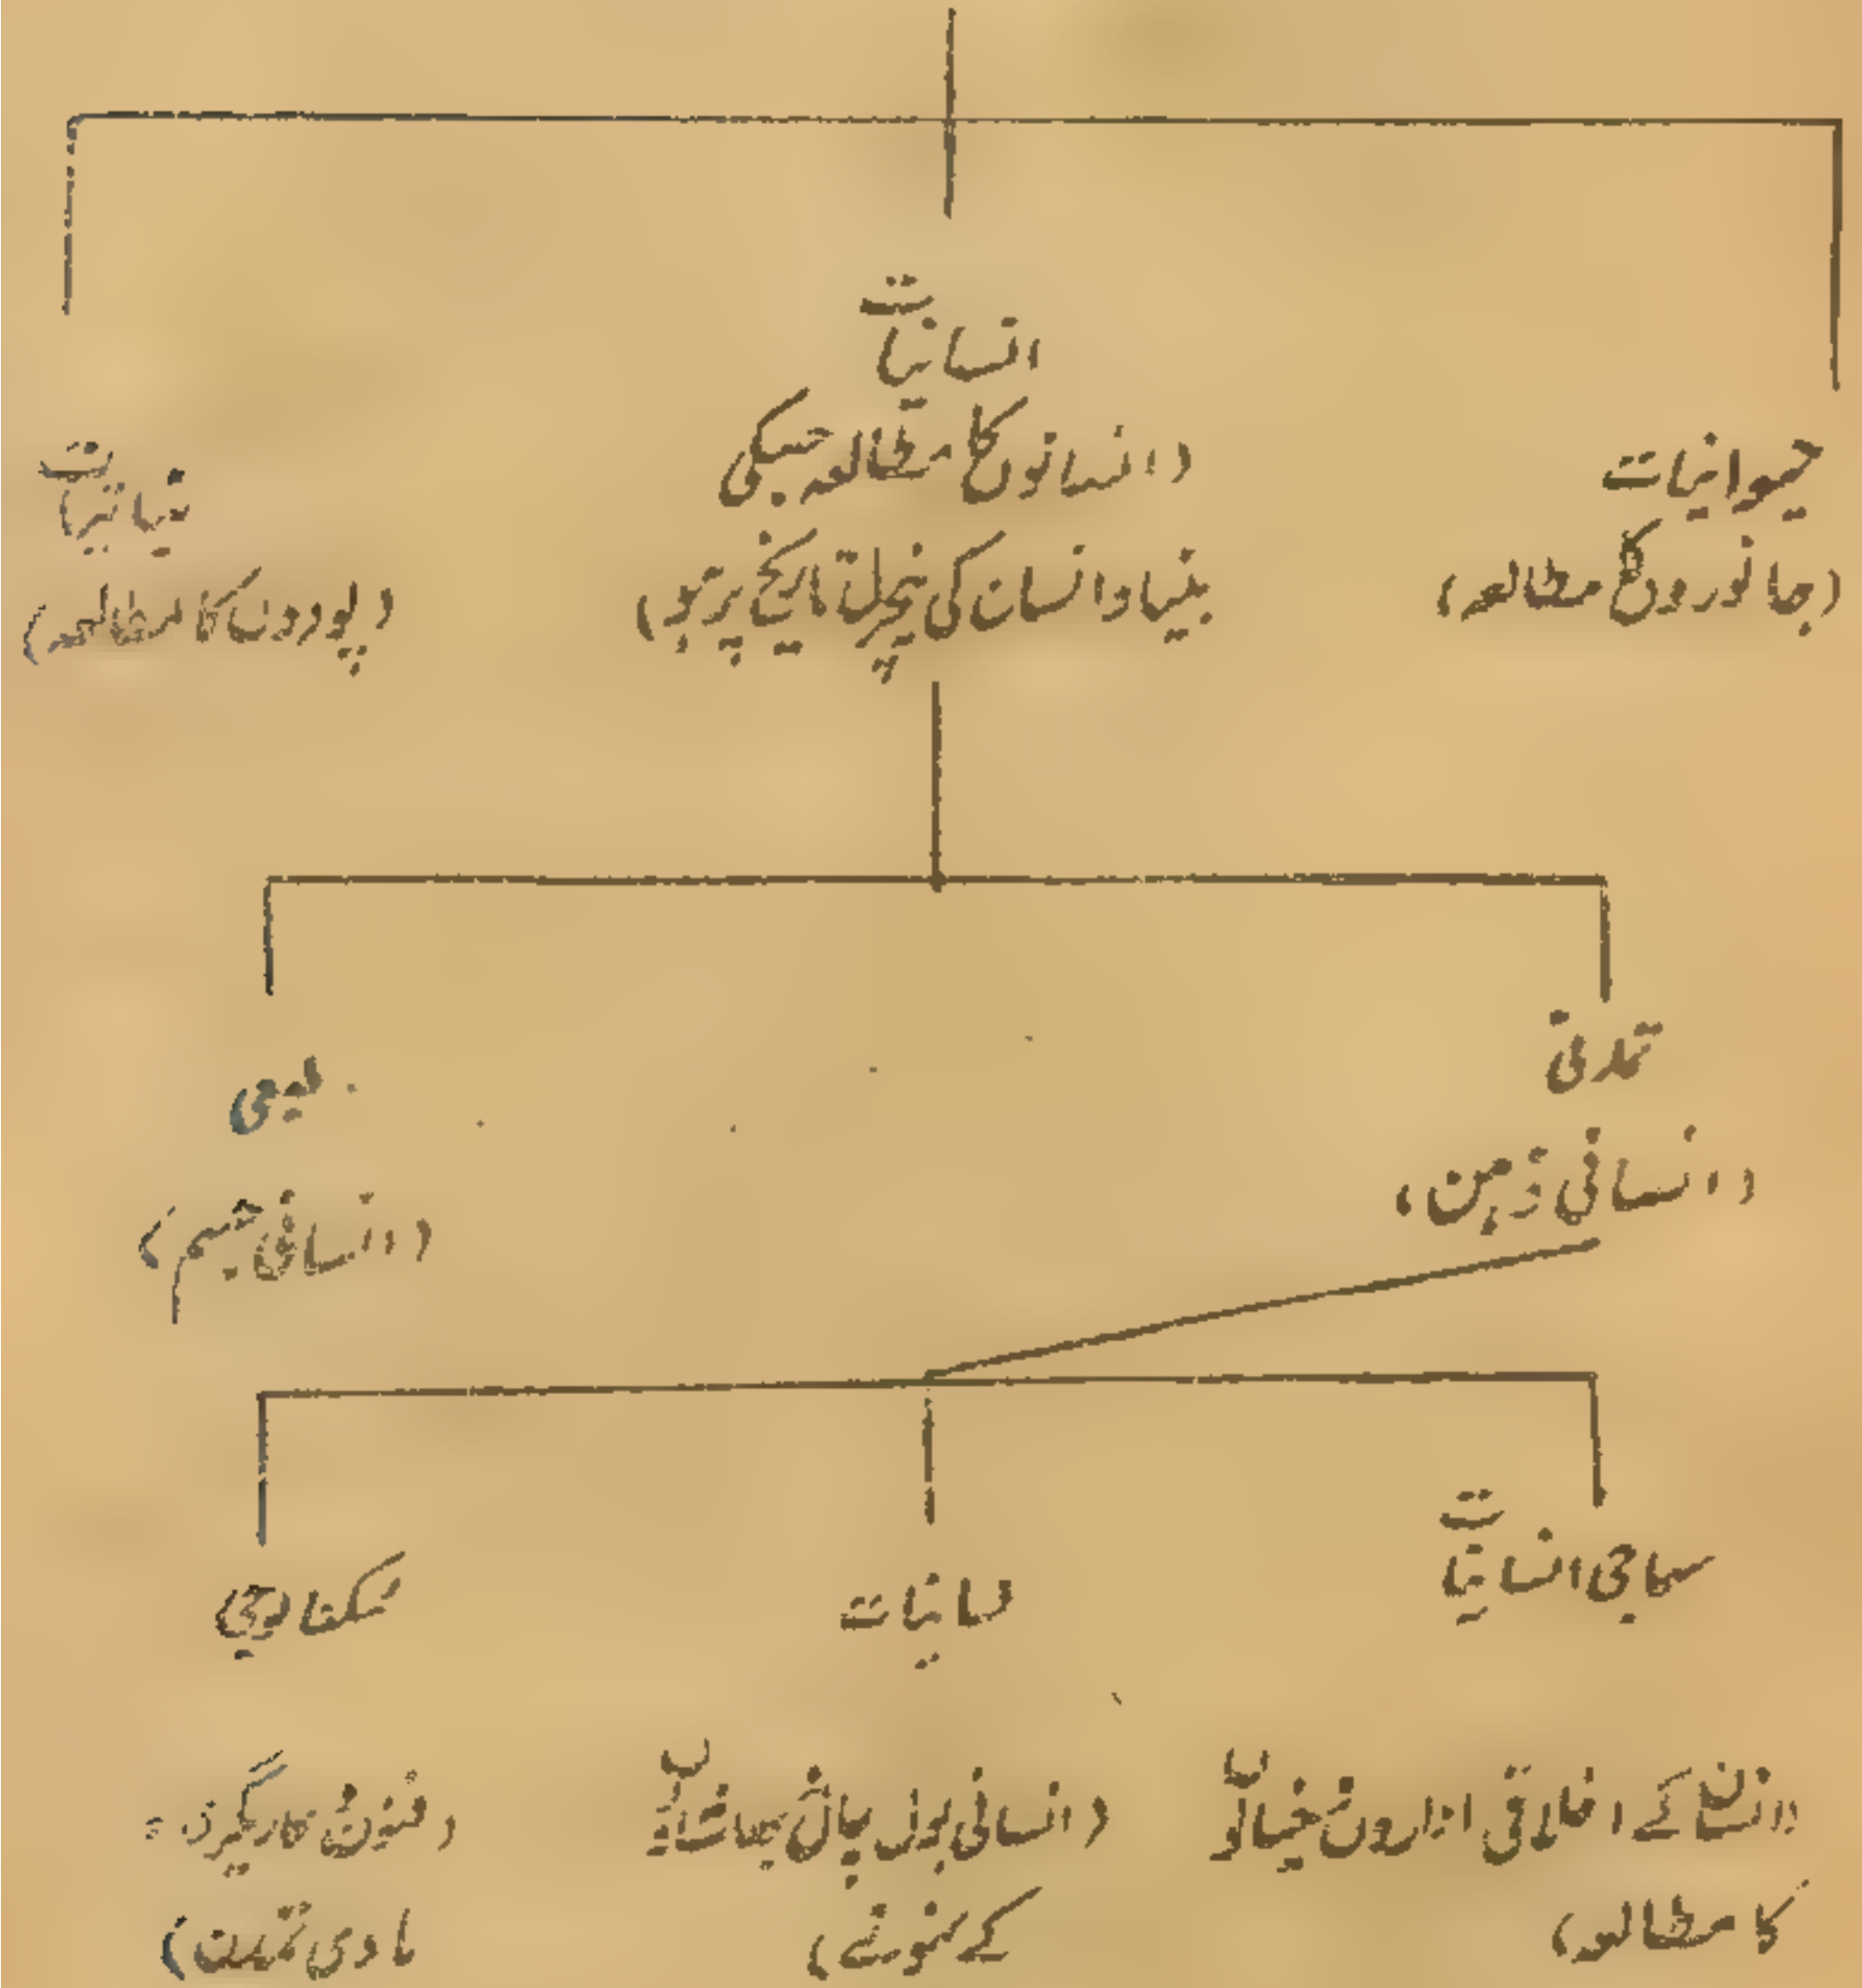 حیوانیات
(جانوروں کا مطالعہ)
انسانیات
(انسانوں کا مطالعہ جسکی
بنیاد انسان کی نیچرل تاریخ پر ہو)
نباتیات
(پودوں کا مطالعہ)
تمدنی
(انسانی ذہن)
طبعی
(انسانی جسم)
سماجی انسانیات
(انسان کے اخلاقی اداروں خیالوں
کا مطالعہ)
لسانیات
(انسانی بول
کے نمونے)
ٹکنالوجی
مادی تمدن)